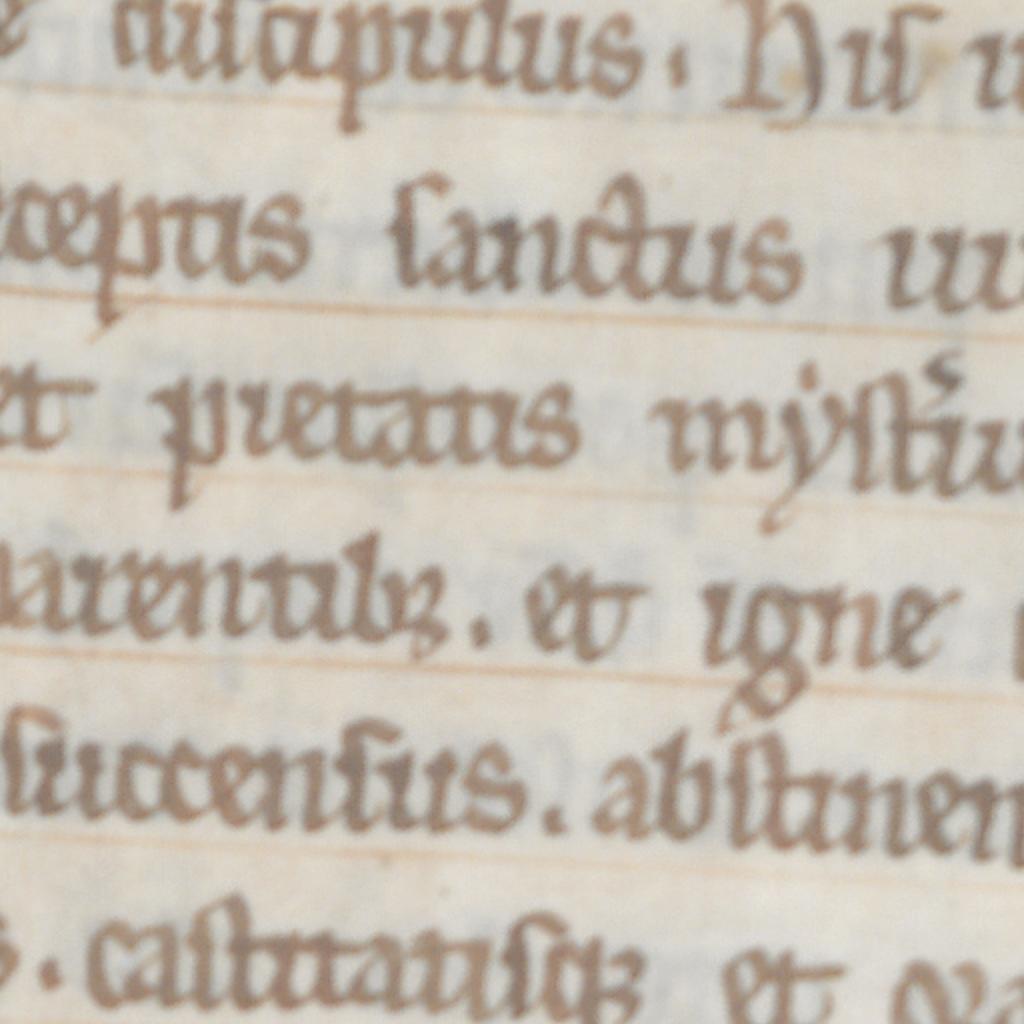 discipulus. His
ceptis sanctus
et pietatis mẏst͛iu
parentibꝫ. et igne
succensus. abstinen
castitatisqꝫ et